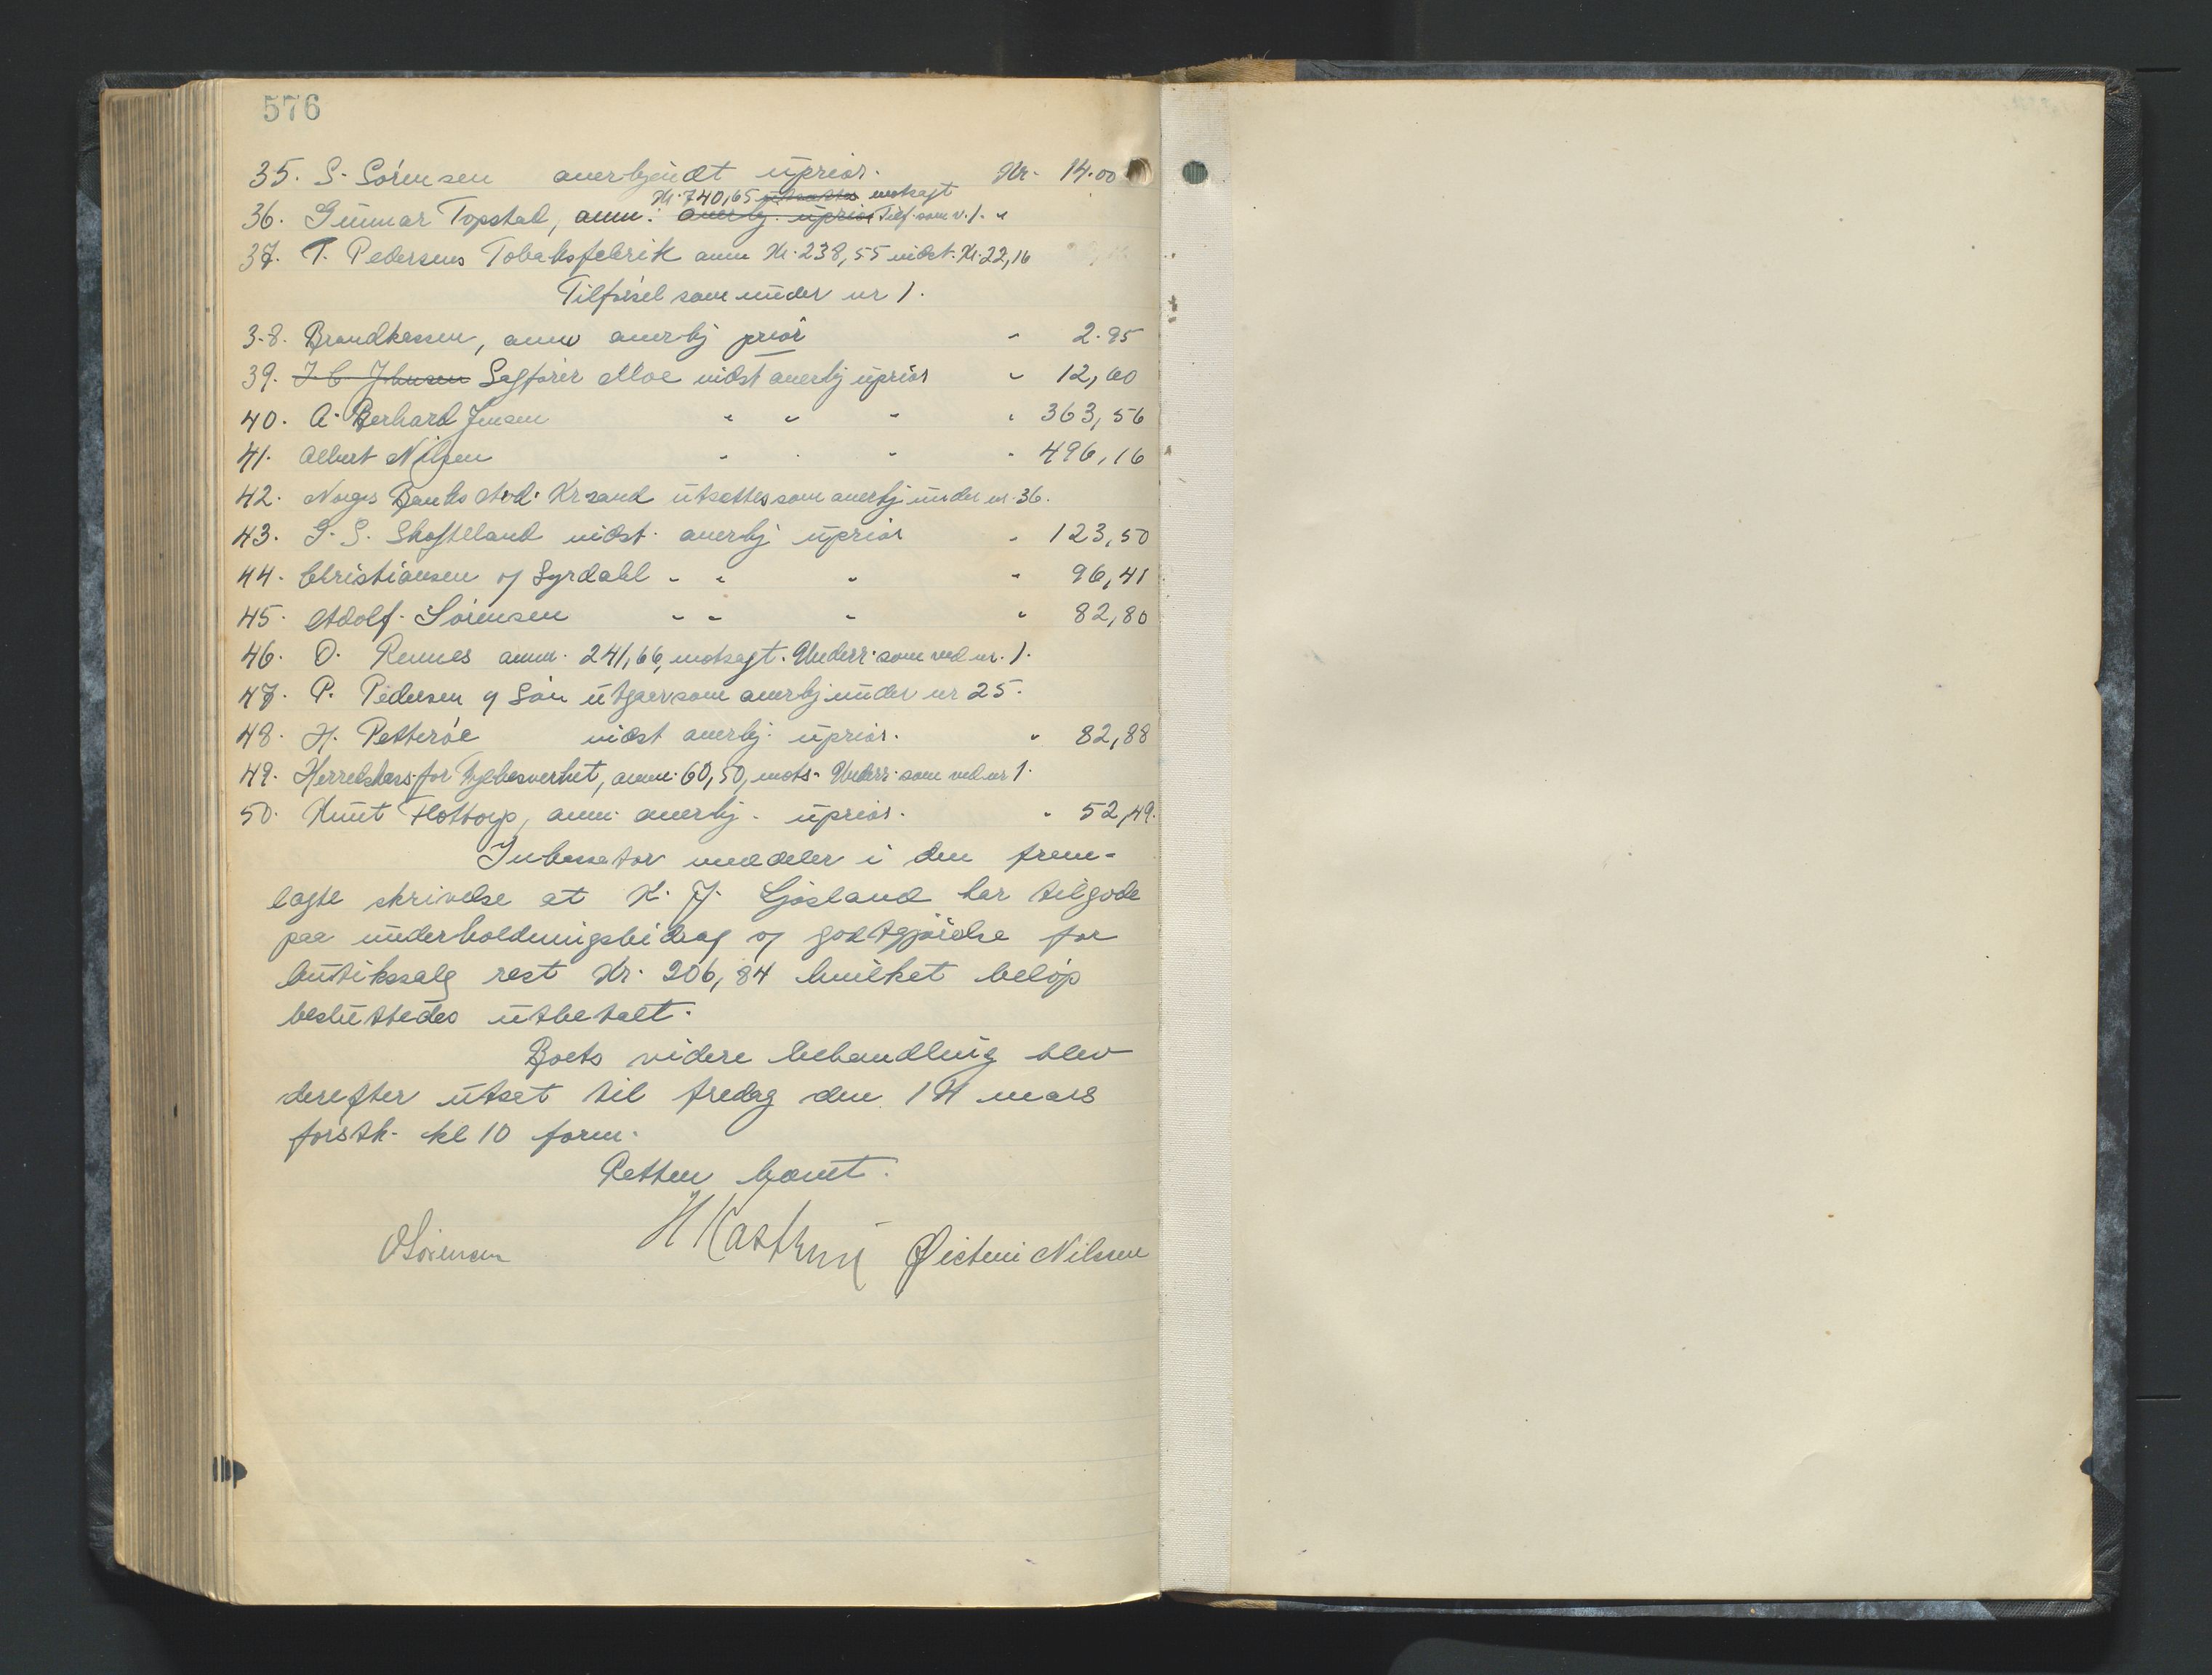 576
35. S. Sörensen anerkjendt uprior. Kr. 14.00
Kr. 740,65 utsættes motsagt
36. Gunnar Topstad, anm. anerkj. uprior Tilf. som v. 1. "
37. T. Pedersens Tobaksfabrik anm Kr. 238,55 vidst. Kr. 22,16
Tilförsel som under nr 1.
38. Brandkassen, anm anerkj prior " 2.95
39. J. C. Johnsen Sagförer Moe vidst anerkj uprior " 12,60
40. A. Berhard Jensen " " " " 363,56
41. Albert Nilsen " " " " 496,16
42. Norges Banks Avd. Krsand utsettes som anerkj under nr. 36.
43. G. S. Skofteland vidst. anerkj uprior " 123,50
44. Christiansen og Syrdahl " " " " 96,41
45. Adolf. Sörensen " " " " 82,80
46. O. Rennes anm. 241,66, motsagt. Underr. som ved nr. 1.
47. P. Pedersen og Sön utgaar som anerkj under nr 25.
48. H. Petteröe vidst anerkj. uprior. " 82,88
49. Herredskass. for , anm. 60,50, mots. Underr. som ved nr 1.
50. Knut Flottorp, anm. anerkj. uprior. " 52,49.
Inkassator meddeler i den frem-
lagte skrivelse at K. J. Ljosland har tilgode
paa underholdningsbidrag og godtgjörelse for
butikssalg rest Kr. 206,84 hvilket belöp
besluttedes utbetalt.
Boets videre behandling blev
derefter utsat til fredag den 14 mars
förstk. kl 10 form.
Retten hævet.
O Sörensen Øistein Nilsen